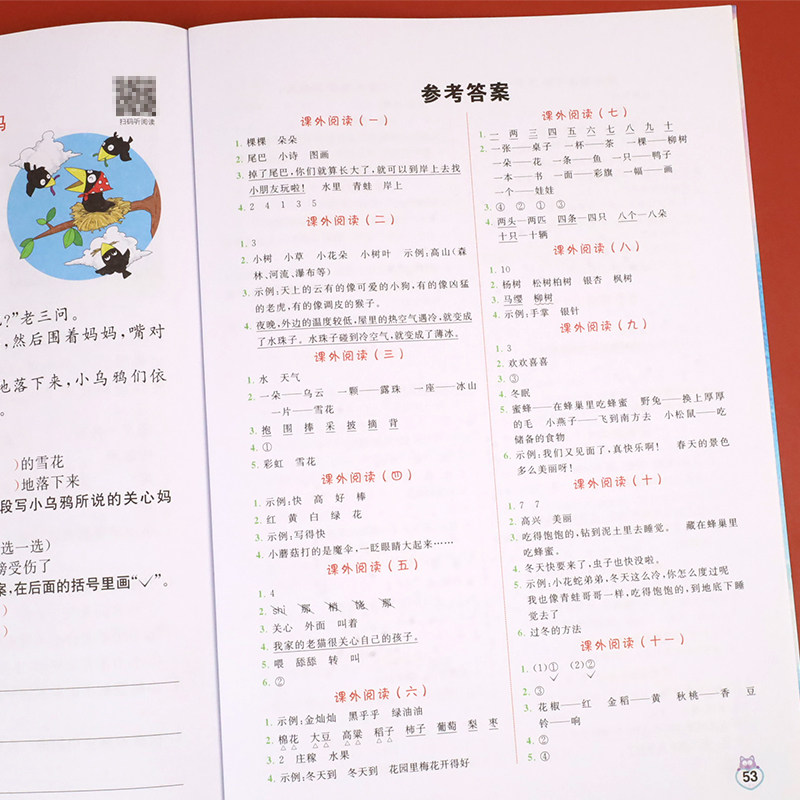 妈
扫码听阅读
?”老三问。
，然后围着妈妈，嘴对
地落下来，小乌鸦们依
。
)的雪花
)地落下来
段写小乌鸦所说的关心妈
选一选）
受伤了
案，在后面的括号里画“✓”。
)
)
参考答案
课外阅读（一）
1. 棵棵 朵朵
2. 尾巴 小诗 图画
3. 掉了尾巴，你们就算长大了，就可以到岸上去找
小朋友玩啦！ 水里 青蛙 岸上
4. 2 4 1 3 5
课外阅读（二）
1. 3
2. 小树 小草 小花朵 小树叶 示例：高山（森
林、河流、瀑布等）
3. 示例：天上的云有的像可爱的小狗，有的像凶猛
的老虎，有的像调皮的猴子。
4. 夜晚，外边的温度较低，屋里的热空气遇冷，就变成
了水珠子。水珠子碰到冷空气，就变成了薄冰。
课外阅读（三）
1. 水 天气
2. 一朵——乌云 一颗——露珠 一座——冰山
一片——雪花
3. 抱 围 捧 采 披 摘 背
4. ①
5. 彩虹 雪花
课外阅读（四）
1. 示例：快 高 好 棒
2. 红 黄 白 绿 花
3. 示例：写得快
4. 小蘑菇打的是魔伞，一眨眼睛大起来……
课外阅读（五）
1. 4
2. shí 那 稍 饶 那
3. 关心 外面 叫着
4. 我家的老猫很关心自己的孩子。
5. 喂 舔舔 转 叫
6. ②
课外阅读（六）
1. 示例：金灿灿 黑乎乎 绿油油
2. 棉花 大豆 高粱 稻子 柿子 葡萄 梨 枣
3. 2 庄稼 水果
4. 示例：冬天到 冬天到 花园里梅花开得好
课外阅读（七）
1. 一 两 三 四 五 六 七 八 九 十
2. 一张——桌子 一杯——茶 一棵——柳树
一朵——花 一条——鱼 一只——鸭子
一本——书 一面——彩旗 一幅——画
一个——娃娃
3. ④ ② ① ③
4. 两头—两匹 四条—四只 八个—八朵
十只—十辆
课外阅读（八）
1. 10
2. 杨树 松树柏树 银杏 枫树
3. 马缨 柳树
4. 示例：手掌 银针
课外阅读（九）
1. 3
2. 欢欢喜喜
3. ③
4. 冬眠
5. 蜜蜂——在蜂巢里吃蜂蜜 野兔——换上厚厚
的毛 小燕子——飞到南方去 小松鼠——吃
储备的食物
6. 示例：我们又见面了，真快乐啊！ 春天的景色
多么美丽呀！
课外阅读（十）
1. 7 7
2. 高兴 美丽
3. 吃得饱饱的，钻到泥土里去睡觉。 藏在蜂巢里
吃蜂蜜。
4. 冬天快要来了，虫子也快没啦。
5. 示例：小花蛇弟弟，冬天这么冷，你怎么度过呢
我也像青蛙哥哥一样，吃得饱饱的，到地底下睡
觉去了
6. 过冬的方法
课外阅读（十一）
1. (1)① (2)②
2. ③
3. 花椒——红 金稻——黄 秋桃——香 豆
铃——响
4. ②
5. ④
53